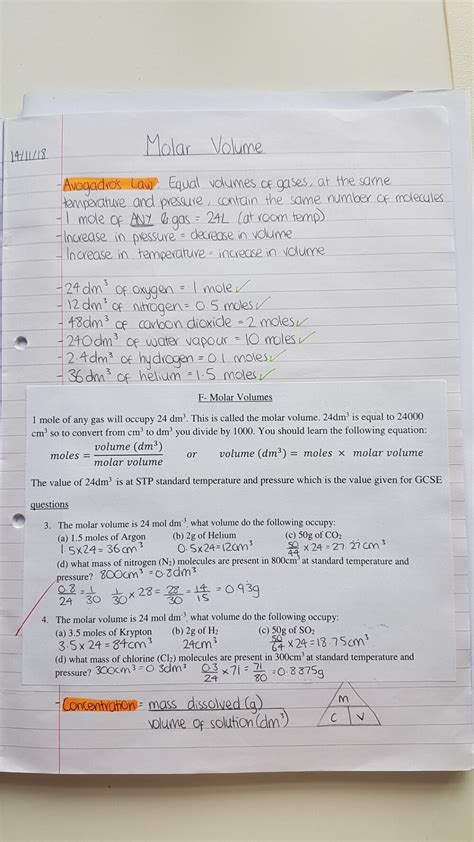 14/11/18
Molar Volume
- Avogadro's Law: Equal volumes of gases, at the same
temperature and pressure, contain the same number of molecules
- 1 mole of ANY gas = 24L (at room temp)
- Increase in pressure = decrease in volume
- Increase in temperature = increase in volume
- 24dm³ of oxygen = 1 mole ✓
- 12dm³ of nitrogen = 0.5 moles ✓
- 48dm³ of carbon dioxide = 2 moles ✓
- 240dm³ of water vapour = 10 moles ✓
- 2.4dm³ of hydrogen = 0.1 moles ✓
- 36dm³ of helium = 1.5 moles ✓
F- Molar Volumes
1 mole of any gas will occupy 24 dm³. This is called the molar volume. 24dm³ is equal to 24000
cm³ so to convert from cm³ to dm³ you divide by 1000. You should learn the following equation:
moles = volume (dm³) / molar volume or volume (dm³) = moles × molar volume
The value of 24dm³ is at STP standard temperature and pressure which is the value given for GCSE
questions
3. The molar volume is 24 mol dm⁻³, what volume do the following occupy:
(a) 1.5 moles of Argon (b) 2g of Helium (c) 50g of CO₂
1.5x24=36cm³ 0.5x24=12cm³ 50/44 x 24 = 27.27cm³
(d) what mass of nitrogen (N₂) molecules are present in 800cm³ at standard temperature and
pressure? 800cm³ = 0.8dm³
0.8/24 = 1/30 1/30 x 28 = 28/30 = 14/15 = 0.93g
4. The molar volume is 24 mol dm⁻³, what volume do the following occupy:
(a) 3.5 moles of Krypton (b) 2g of H₂ (c) 50g of SO₂
3.5x24=84cm³ 24cm³ 50/64 x24=18.75cm³
(d) what mass of chlorine (Cl₂) molecules are present in 300cm³ at standard temperature and
pressure? 300cm³=0.3dm³ 0.3/24 x 71 = 71/80 = 0.8875g
- Concentration = mass dissolved (g) / volume of solution (dm³)
m
c v